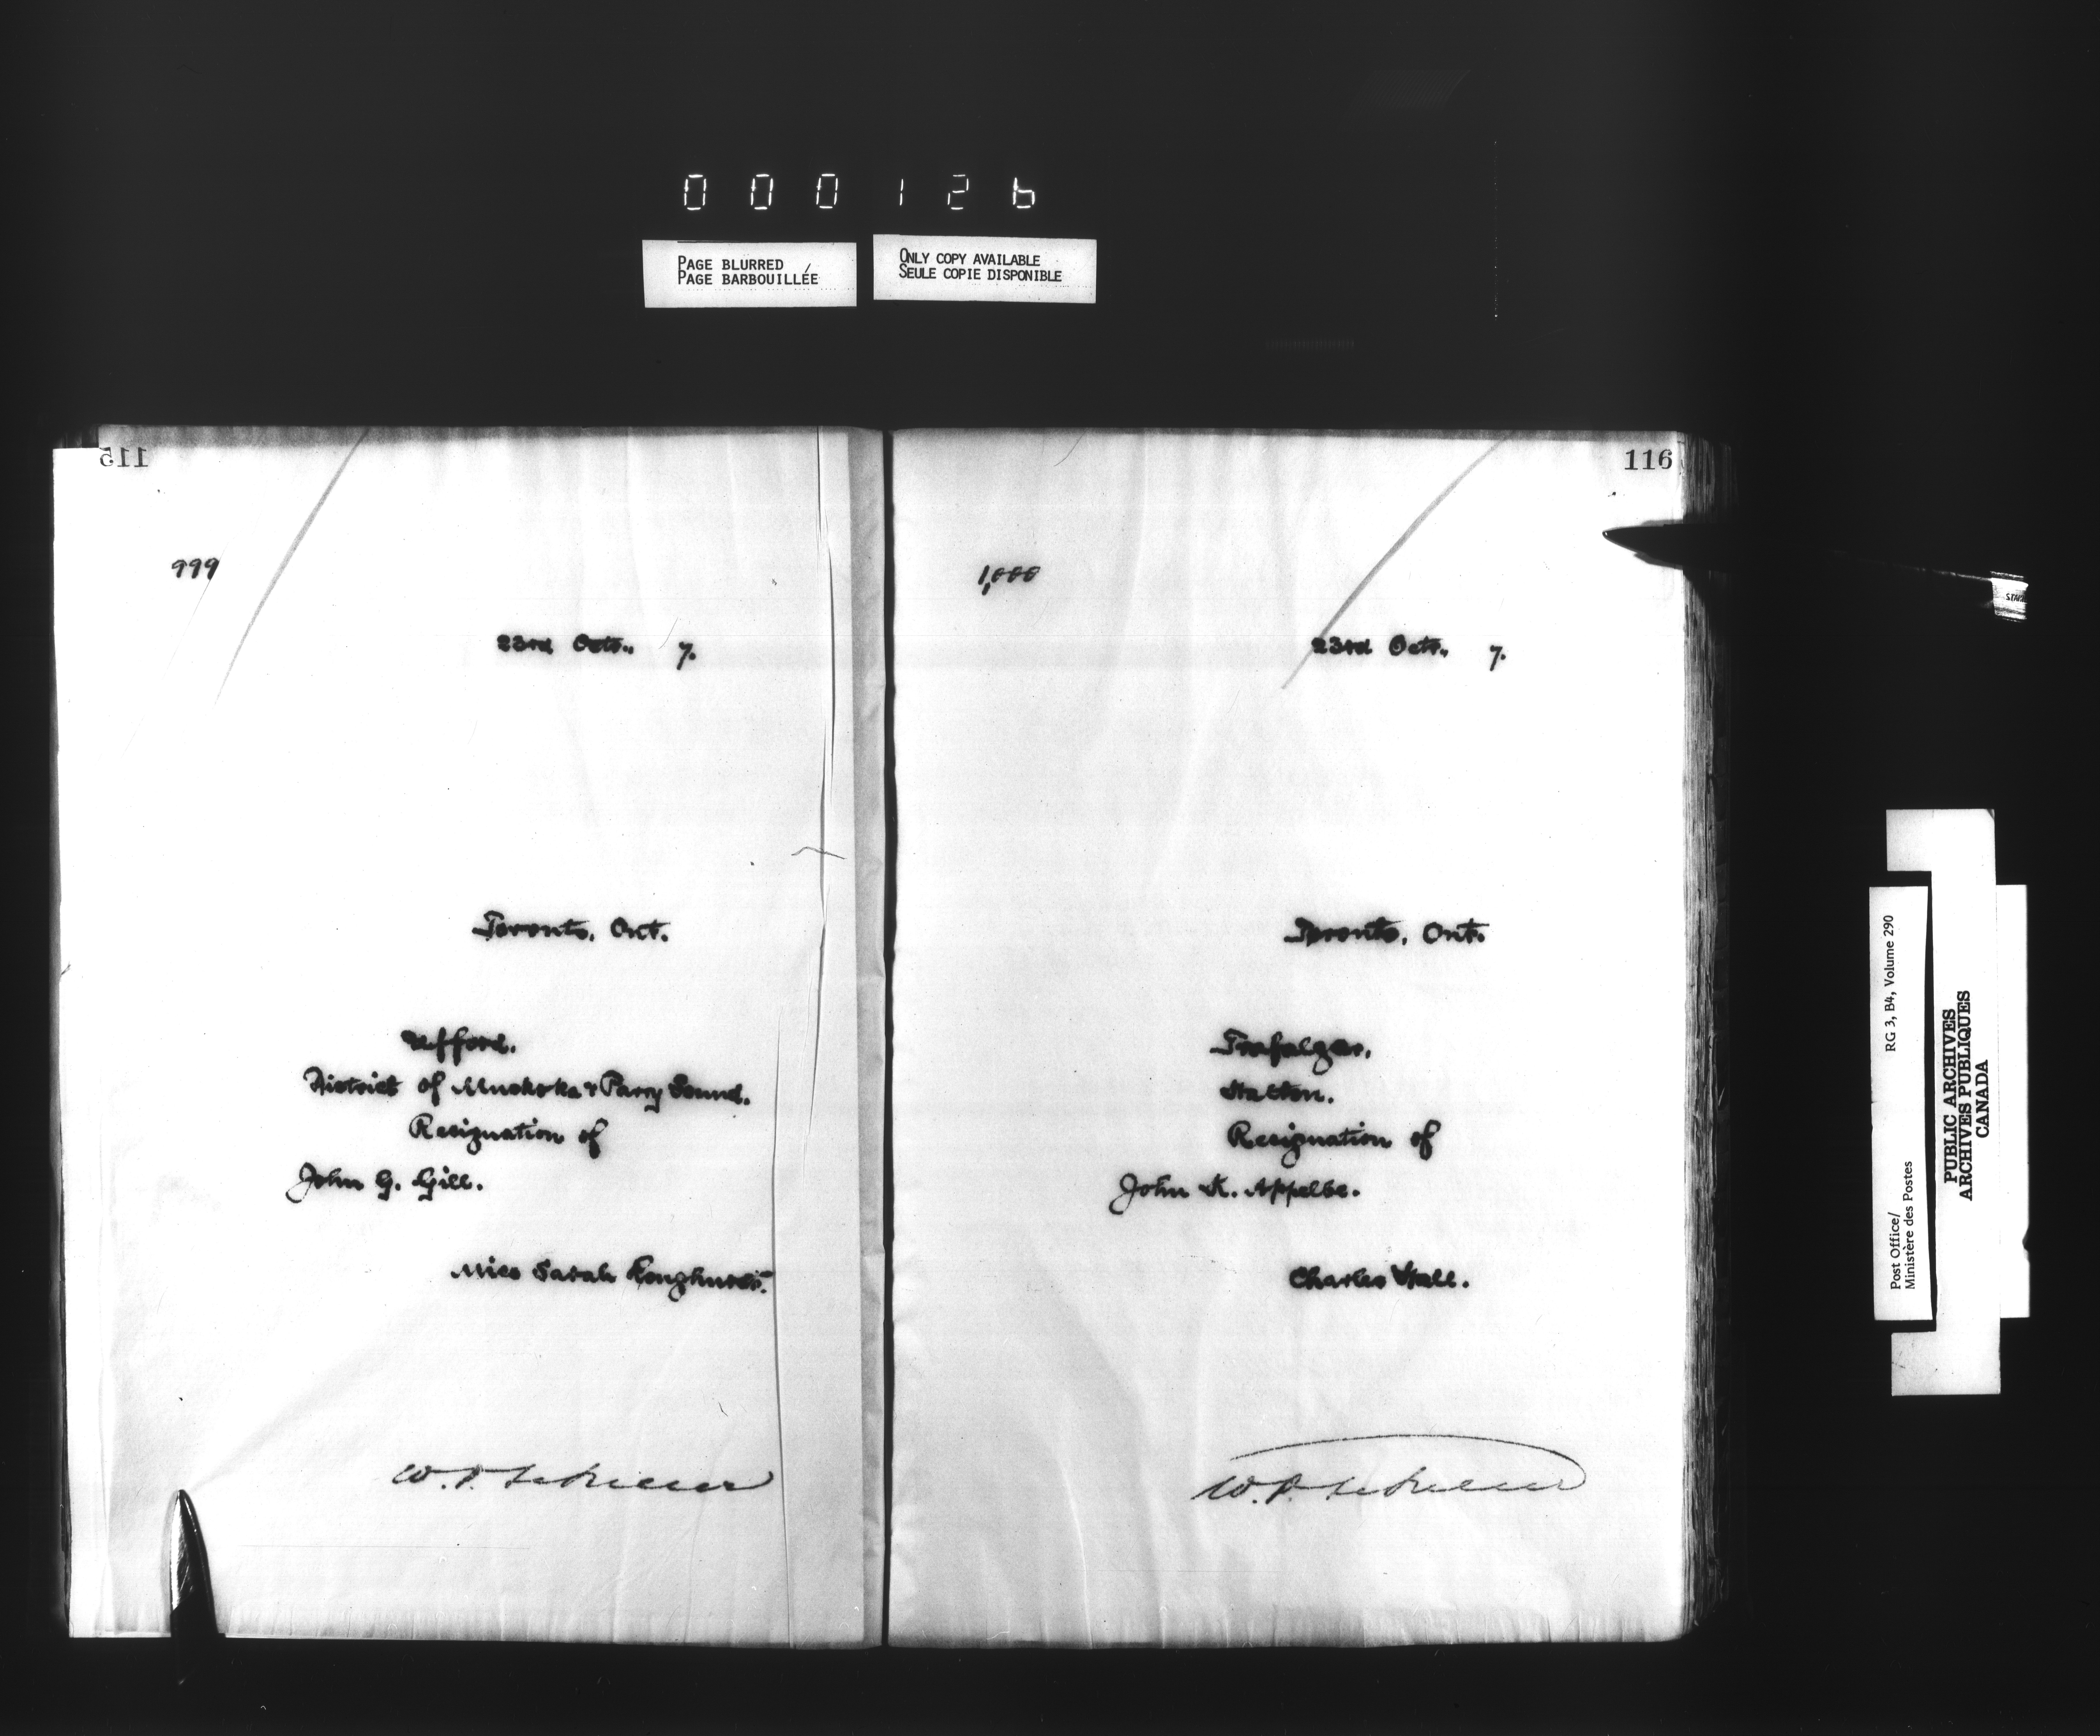 000126
PAGE BLURRED
PAGE BARBOUILLÉE
ONLY COPY AVAILABLE
SEULE COPIE DISPONIBLE
115
999
23rd Octr., 7.
Toronto, Ont.
Ufford.
District of Muskoka & Parry Sound.
Resignation of
John G. Gill.
Miss Sarah Longhurst.
W.P.
116
1,000
23rd Octr., 7.
Toronto, Ont.
Trafalgar.
Halton.
Resignation of
John K. Appelbe.
Charles Hall.
W.P.
Post Office/ RG 3, B4, Volume 290
Ministère des Postes
PUBLIC ARCHIVES
ARCHIVES PUBLIQUES
CANADA